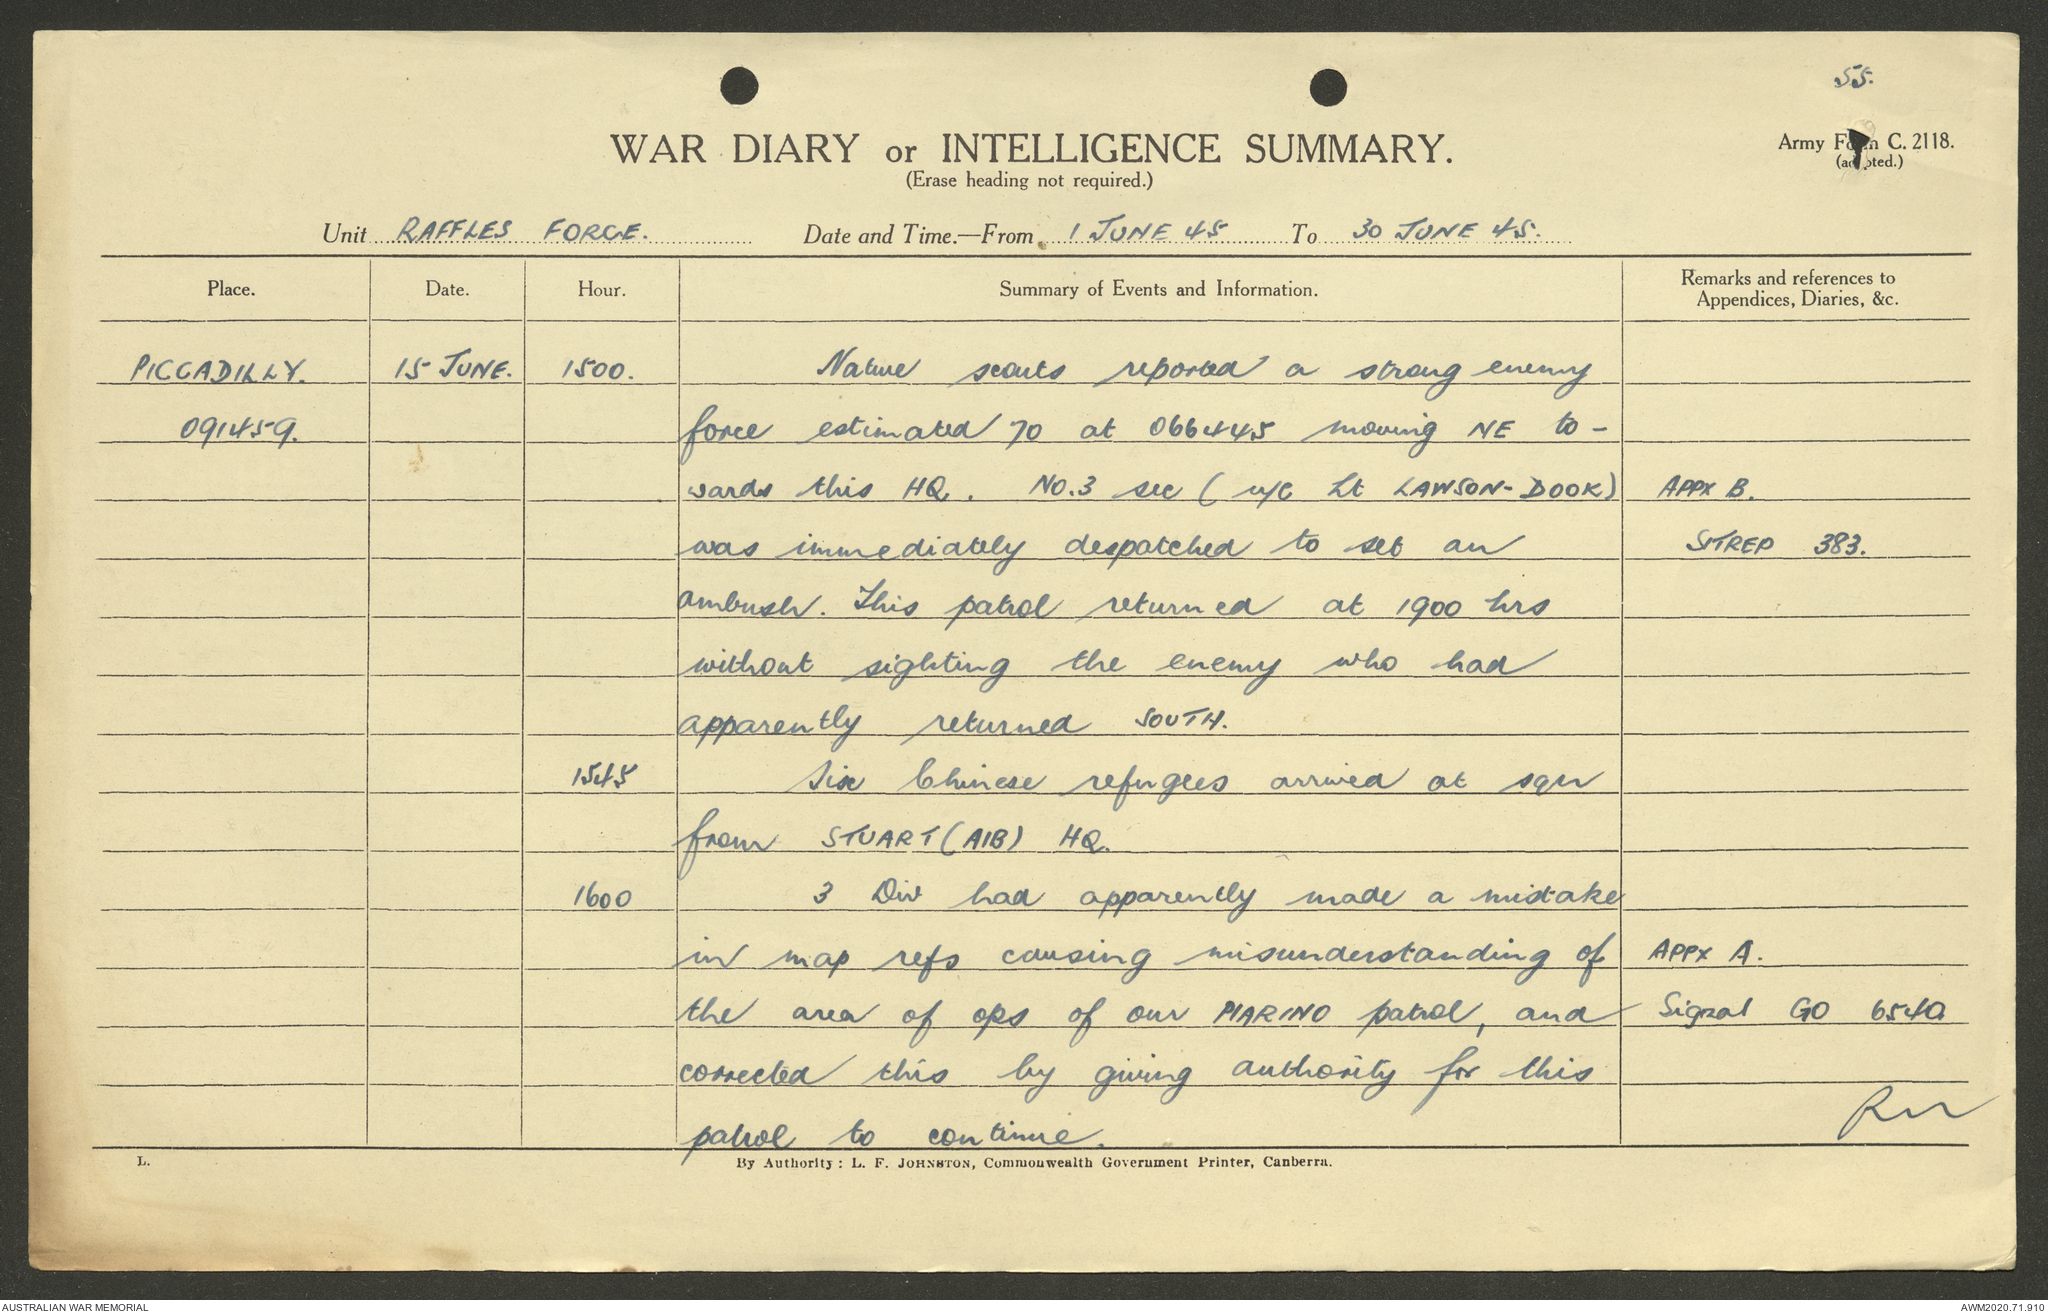 55.
WAR DIARY or INTELLIGENCE SUMMARY.
(Erase heading not required.)
Army Form C. 2118.
(adopted.)
Unit RAFFLES FORCE. Date and Time.—From 1 JUNE 45 To 30 JUNE 45.
Place. Date. Hour. Summary of Events and Information. Remarks and references to Appendices, Diaries, &c.
PICCADILLY. 15 JUNE. 1500. Native scouts reported a strong enemy
091459. force estimated 70 at 066445 moving NE to-
wards this HQ. NO.3 sec (u/c Lt LAWSON-DOOK) APPX B.
was immediately despatched to set an SITREP 383.
ambush. This patrol returned at 1900 hrs
without sighting the enemy who had
apparently returned SOUTH.
1545 Six Chinese refugees arrived at sqn
from STUART (AIB) HQ.
1600 3 Div had apparently made a mistake
in map refs causing misunderstanding of APPX A.
the area of ops of our PIARINO patrol, and Signal GO 6540
corrected this by giving authority for this
patrol to continue.
L. By Authority: L. F. JOHNSTON, Commonwealth Government Printer, Canberra.
AUSTRALIAN WAR MEMORIAL AWM2020.71.910